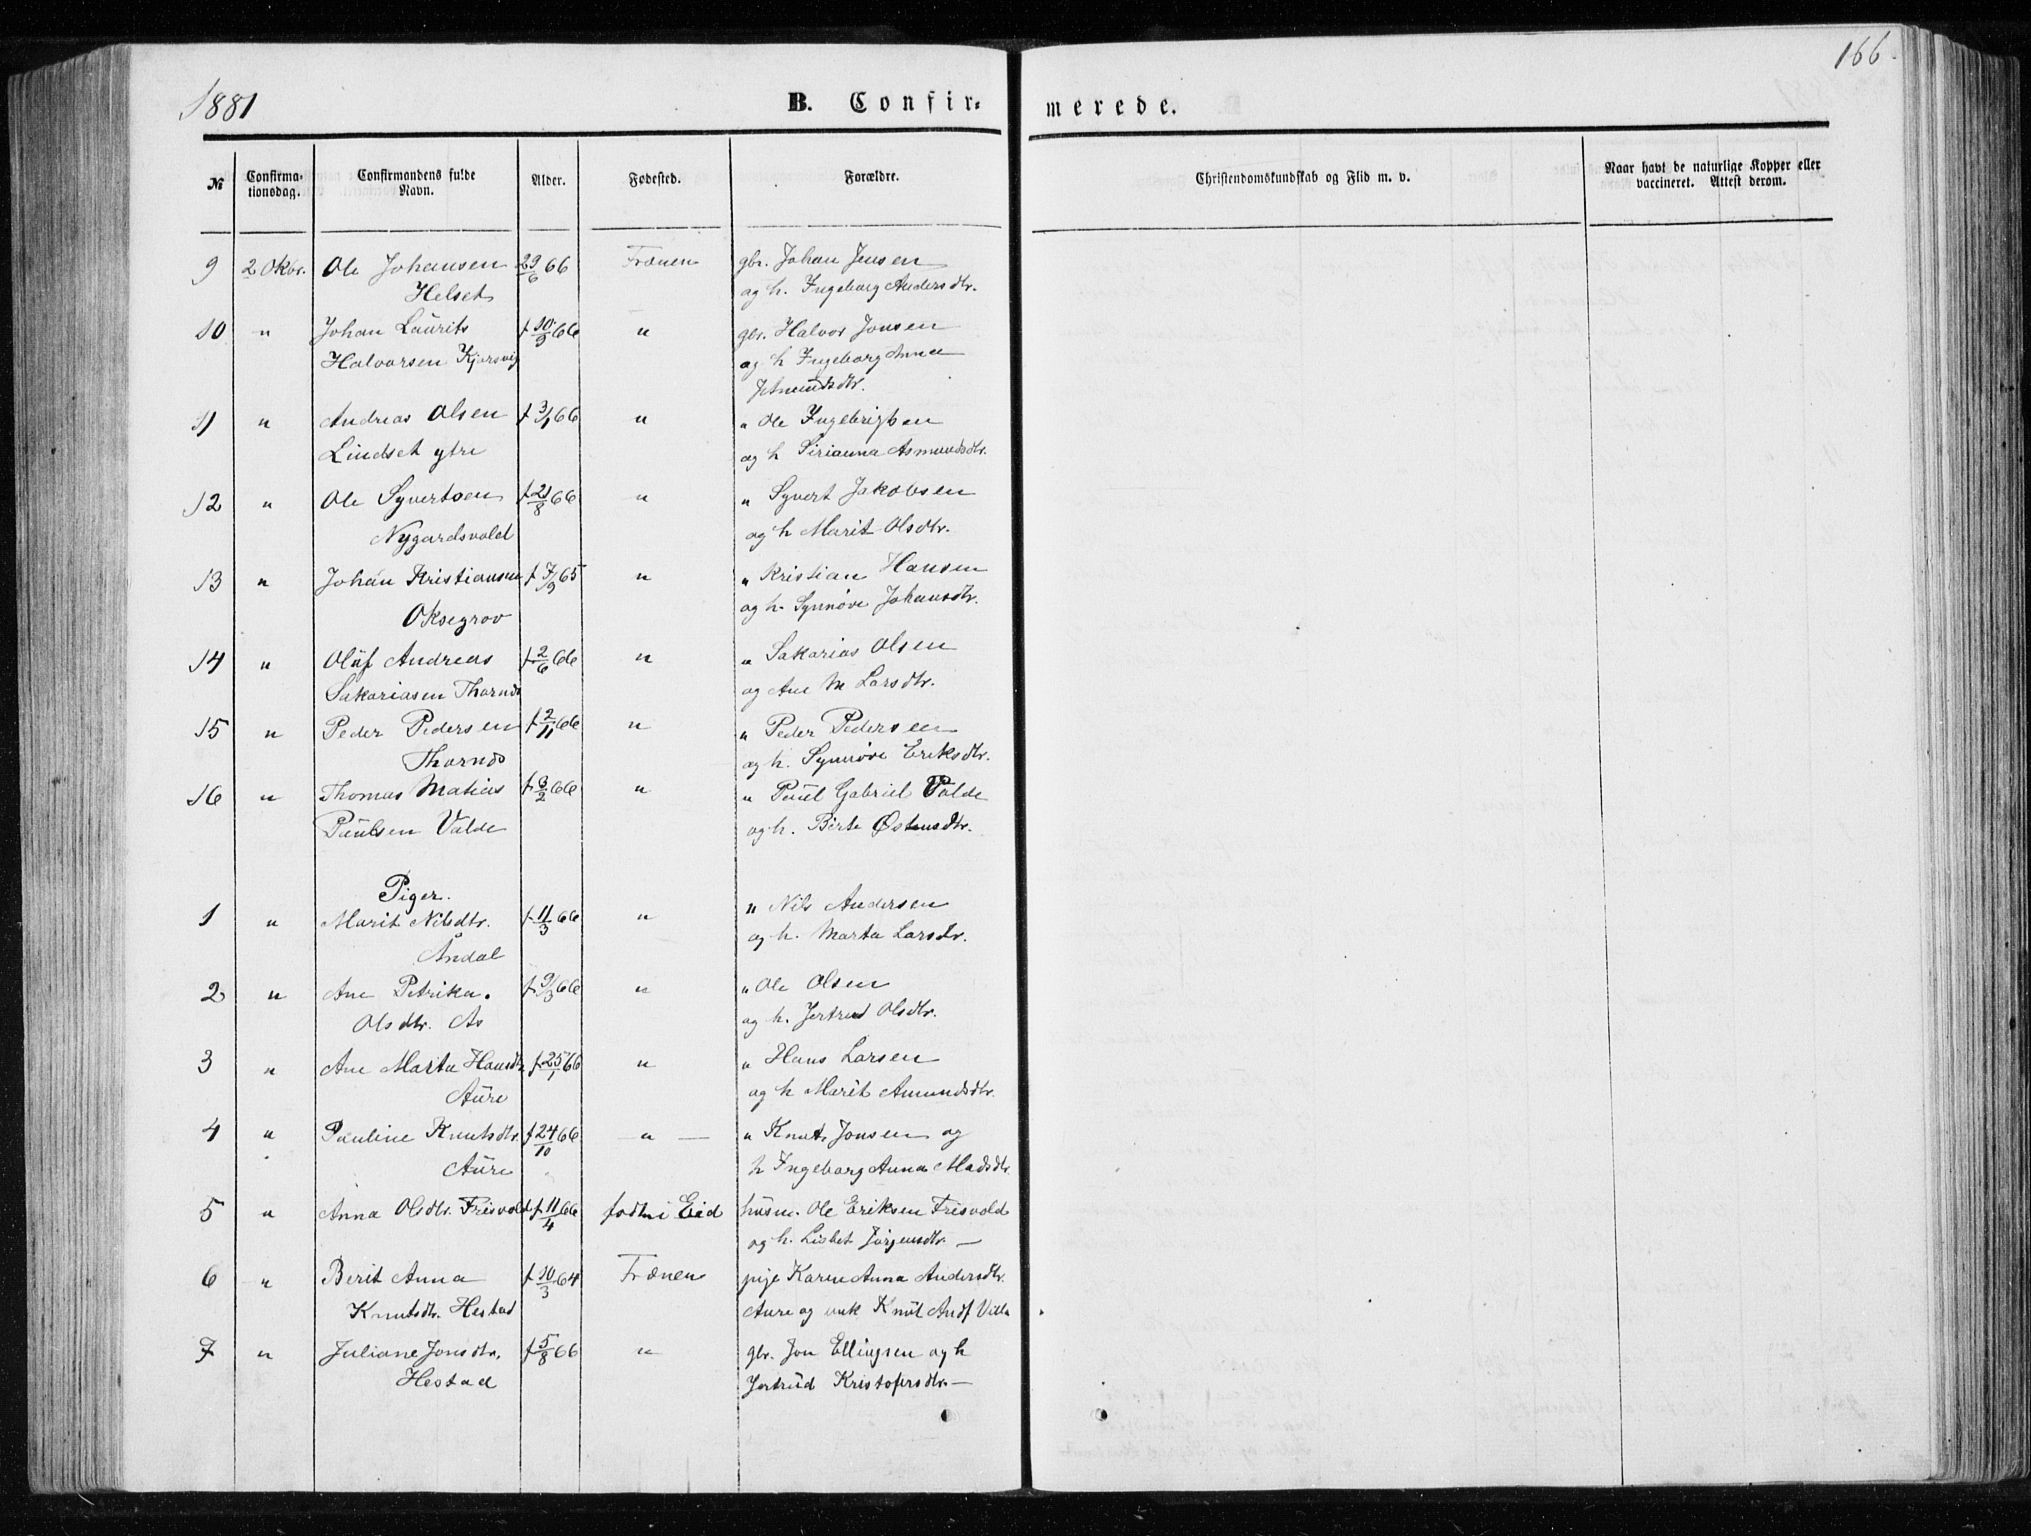 166
1881 B. Confir- merede.
№ Confirma-tionsdag. Confirmandens fulde Navn. Alder. Fødested. Forældre. Christendomskundskab og Flid m. v. Naar havt de naturlige Kopper eller vaccineret. Attest derom.
9 2 Okbr. Ole Johansen 29/6 66 Frænen gbr. Johan Jensen
Helset og h. Ingeborg Andersdtr.
10 " Johan Laurits f 10/9 66 " gbr. Halvor Jonsen
Halvorsen Kjørsvig og h Ingeborg Anna
Amundsdtr.
11 " Andreas Olsen f 3/1 66 " " Ole Ingebrigtsen
Lindset ytre og h Sirianna Asmundsdtr.
12 " Ole Syvertsen f 21/8 66 " " Syvert Jakobsen
Nygardsvold og h Marit Olsdtr.
13 " Johan Kristiansen f 7/9 65 " " Kristian Hansen
Oksegrov og h. Synnøve Johansdtr.
14 " Oluf Andreas f 2/6 66 " " Sakarias Olsen
Sakariasen Thornds og Ane M Larsdtr.
15 " Peder Pedersen f 2/11 66 " " Peder Pedersen
Thornds og h. Synnøve Eriksdtr.
16 " Thomas Matias f 3/2 66 " " Paul Gabriel Valde
Paulsen Valde og h. Birte Østensdtr.
Piger.
1 " Marit Nilsdtr. f 11/3 66 " " Nils Andersen
Åndal og h. Marta Larsdtr.
2 " Ane Petrika f 9/3 66 " " Ole Olsen
Olsdtr. As og h. Jertrud Olsdtr.
3 " Ane Marta Hansdtr f 25/1 66 " " Hans Larsen
Aure og h Marit Amundsdtr.
4 " Pauline Knutsdtr. f 24/10 66 — " — " Knut Jonsen og
Aure h Ingeborg Anna Madsdtr.
5 " Anna Olsdtr. Frisvold f 11/4 66 født i Eid husm. Ole Eriksen Frisvold
og h. Lisbet Jørgensdtr. —
6 " Berit Anna f 10/3 64 Frænen pige Karen Anna Andersdtr.
Knutsdtr. Hestad Aure og unk Knut Andf Villa
7 " Juliane Jonsdtr. f 5/8 66 " gbr. Jon Ellingsen og h
Hestad Jertrud Kristofersdtr. —